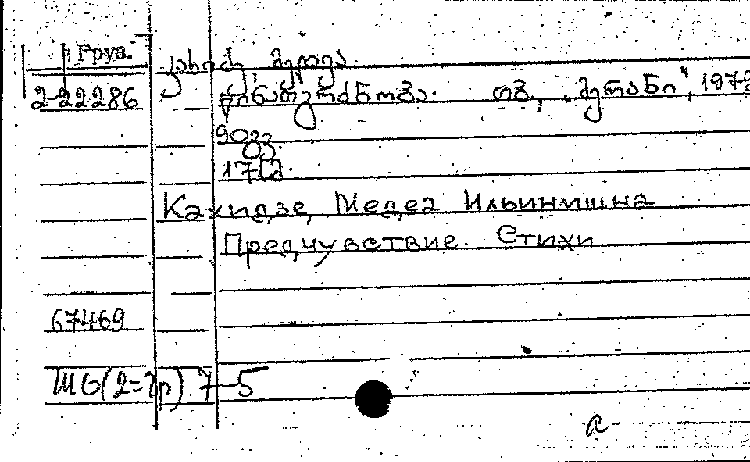 Груз.
კახიძე, მედეა.
2-22286 წინათგრძნობა. თბ., „მერანი“, 197
90გვ
Кахидзе, Медеа Ильинишна
Предчувствие. Стихи
67469
Ш6(2=Гр) 7-5
а-